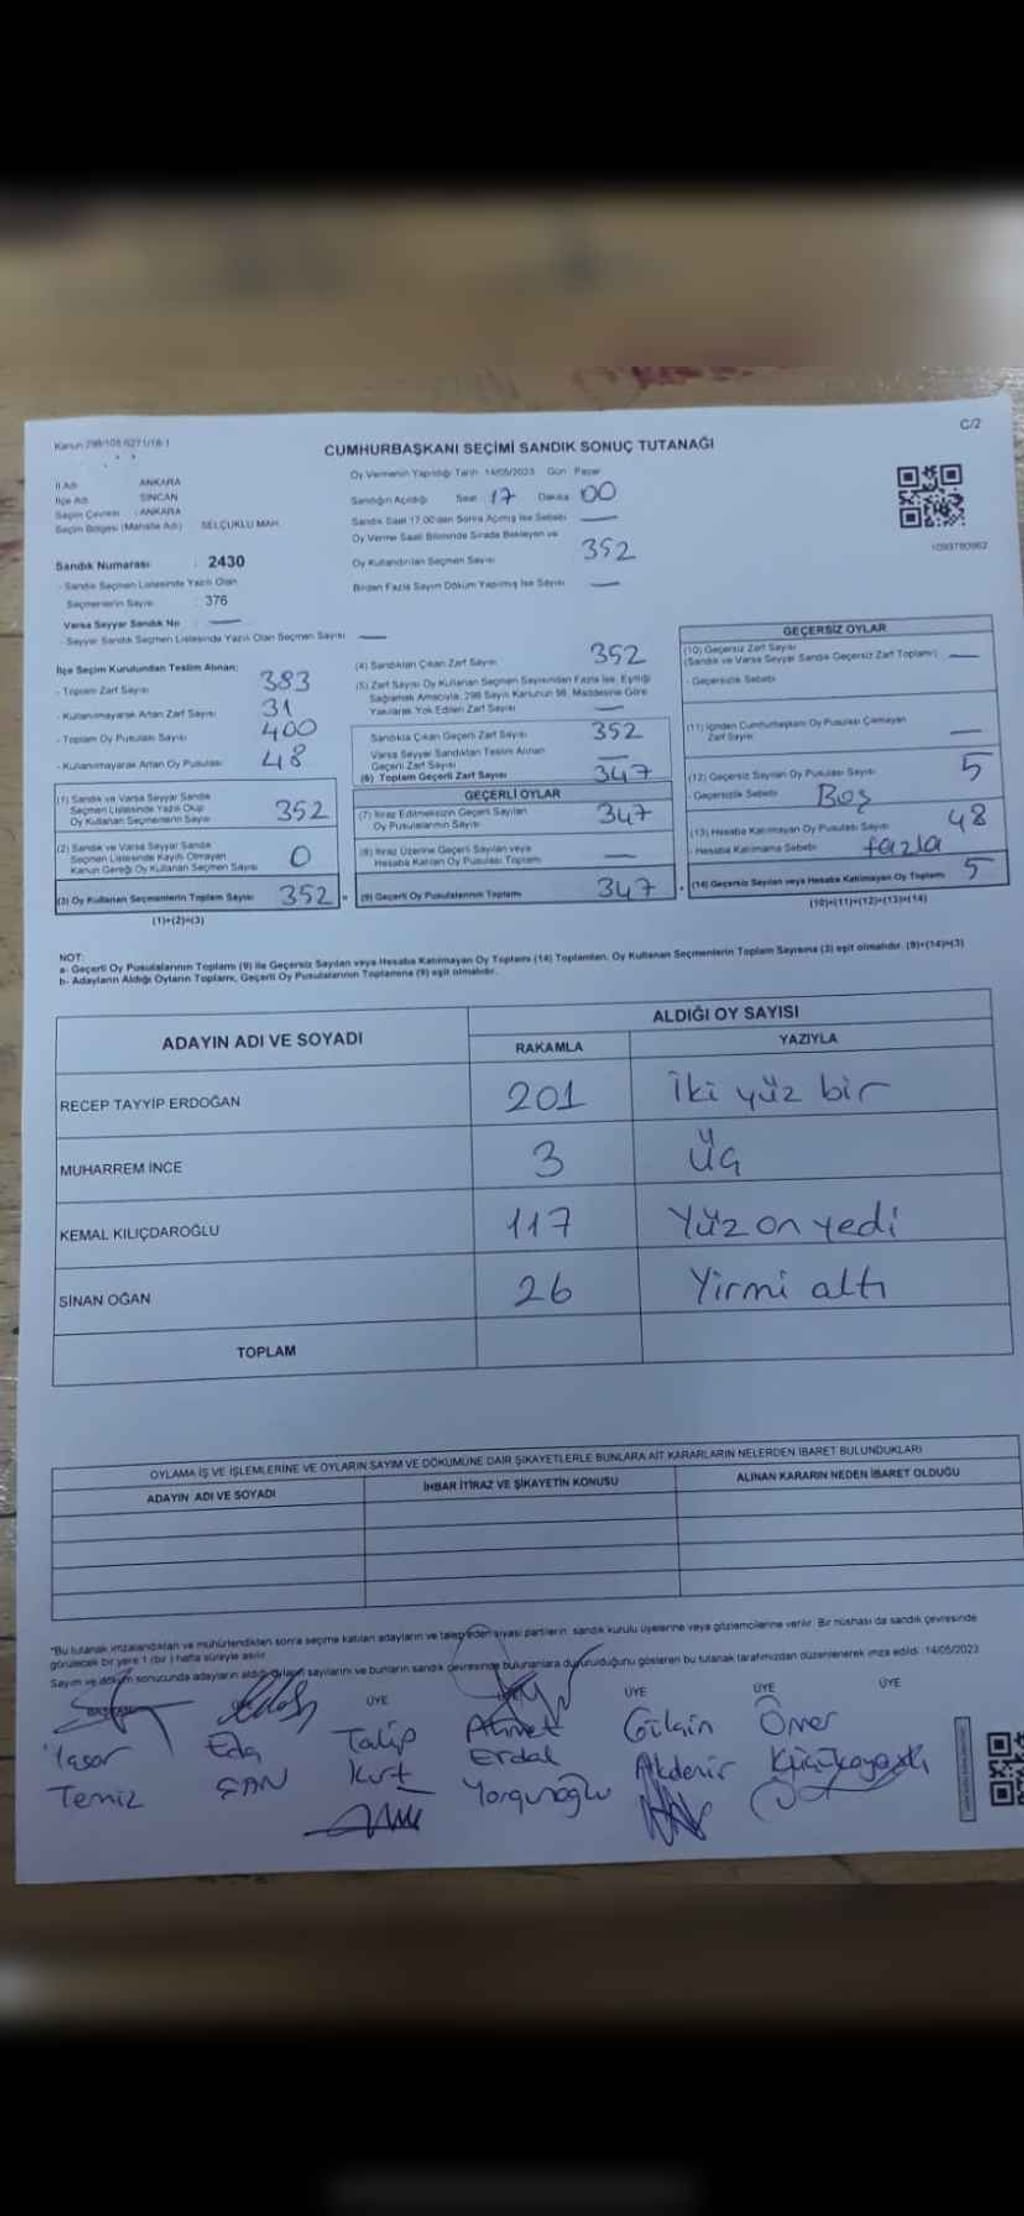 Kanun 298/105 6271/18-1
C/2
CUMHURBAŞKANI SEÇİMİ SANDIK SONUÇ TUTANAĞI
İl Adı ANKARA
İlçe Adı SİNCAN
Seçim Çevresi : ANKARA
Seçim Bölgesi (Mahalle Adı) SELÇUKLU MAH.
Sandık Numarası : 2430
- Sandık Seçmen Listesinde Yazılı Olan
Seçmenlerin Sayısı : 376
Varsa Seyyar Sandık No —
- Seyyar Sandık Seçmen Listesinde Yazılı Olan Seçmen Sayısı —
Oy Vermenin Yapıldığı Tarih 14/05/2023 Gün Pazar
Sandığın Açıldığı Saat 17 Dakika 00
Sandık Saat 17.00'den Sonra Açılmış İse Sebebi —
Oy Verme Saati Bitiminde Sırada Bekleyen ve
Oy Kullandırılan Seçmen Sayısı 352
Birden Fazla Sayım Döküm Yapılmış İse Sayısı —
1093780962
İlçe Seçim Kurulundan Teslim Alınan:
- Toplam Zarf Sayısı 383
- Kullanılmayarak Artan Zarf Sayısı 31
- Toplam Oy Pusulası Sayısı 400
- Kullanılmayarak Artan Oy Pusulası 48
(1) Sandık ve Varsa Seyyar Sandık
Seçmen Listesinde Yazılı Olup
Oy Kullanan Seçmenlerin Sayısı 352
(2) Sandık ve Varsa Seyyar Sandık
Seçmen Listesinde Kayıtlı Olmayan
Kanun Gereği Oy Kullanan Seçmen Sayısı 0
(3) Oy Kullanan Seçmenlerin Toplam Sayısı 352
(1)+(2)=(3)
(4) Sandıktan Çıkan Zarf Sayısı 352
(5) Zarf Sayısı Oy Kullanan Seçmen Sayısından Fazla İse, Eşitliği
Sağlamak Amacıyla, 298 Sayılı Kanunun 98. Maddesine Göre
Yakılarak Yok Edilen Zarf Sayısı —
Sandıkta Çıkan Geçerli Zarf Sayısı 352
Varsa Seyyar Sandıktan Teslim Alınan
Geçerli Zarf Sayısı —
(6) Toplam Geçerli Zarf Sayısı 347
GEÇERLİ OYLAR
(7) İtiraz Edilmeksizin Geçerli Sayılan
Oy Pusulalarının Sayısı 347
(8) İtiraz Üzerine Geçerli Sayılan veya
Hesaba Katılan Oy Pusulası Toplamı —
(9) Geçerli Oy Pusulalarının Toplamı 347
GEÇERSİZ OYLAR
(10) Geçersiz Zarf Sayısı
(Sandık ve Varsa Seyyar Sandık Geçersiz Zarf Toplamı) —
- Geçersizlik Sebebi
(11) İçinden Cumhurbaşkanı Oy Pusulası Çıkmayan
Zarf Sayısı —
(12) Geçersiz Sayılan Oy Pusulası Sayısı 5
- Geçersizlik Sebebi Boş
(13) Hesaba Katılmayan Oy Pusulası Sayısı 48
- Hesaba Katılmama Sebebi fazla
(14) Geçersiz Sayılan veya Hesaba Katılmayan Oy Toplamı 5
(10)+(11)+(12)+(13)=(14)
NOT:
a- Geçerli Oy Pusulalarının Toplamı (9) ile Geçersiz Sayılan veya Hesaba Katılmayan Oy Toplamı (14) Toplamları, Oy Kullanan Seçmenlerin Toplam Sayısına (3) eşit olmalıdır. (9)+(14)=(3)
b- Adayların Aldığı Oyların Toplamı, Geçerli Oy Pusulalarının Toplamına (9) eşit olmalıdır.
ADAYIN ADI VE SOYADI
ALDIĞI OY SAYISI
RAKAMLA YAZIYLA
RECEP TAYYİP ERDOĞAN 201 İki yüz bir
MUHARREM İNCE 3 Üç
KEMAL KILIÇDAROĞLU 117 Yüz on yedi
SİNAN OĞAN 26 Yirmi altı
TOPLAM
OYLAMA İŞ VE İŞLEMLERİNE VE OYLARIN SAYIM VE DÖKÜMÜNE DAİR ŞİKAYETLERLE BUNLARA AİT KARARLARIN NELERDEN İBARET BULUNDUKLARI
ADAYIN ADI VE SOYADI İHBAR İTİRAZ VE ŞİKAYETİN KONUSU ALINAN KARARIN NEDEN İBARET OLDUĞU
*Bu tutanak imzalandıktan ve mühürlendikten sonra seçime katılan adayların ve talep eden siyasi partilerin, sandık kurulu üyelerine veya gözlemcilerine verilir. Bir nüshası da sandık çevresinde
görülecek bir yere 1 (bir) hafta süreyle asılır.
Sayım ve döküm sonucunda adayların aldığı oyların sayılarını ve bunların sandık çevresinde bulunanlara duyurulduğunu gösteren bu tutanak tarafımızdan düzenlenerek imza edildi. 14/05/2023
ÜYE ÜYE ÜYE ÜYE
Yaşar Eda Talip Ahmet Gülçin Ömer
Temiz ŞAN Kurt Erdal Akdenir
Yorgunoğlu